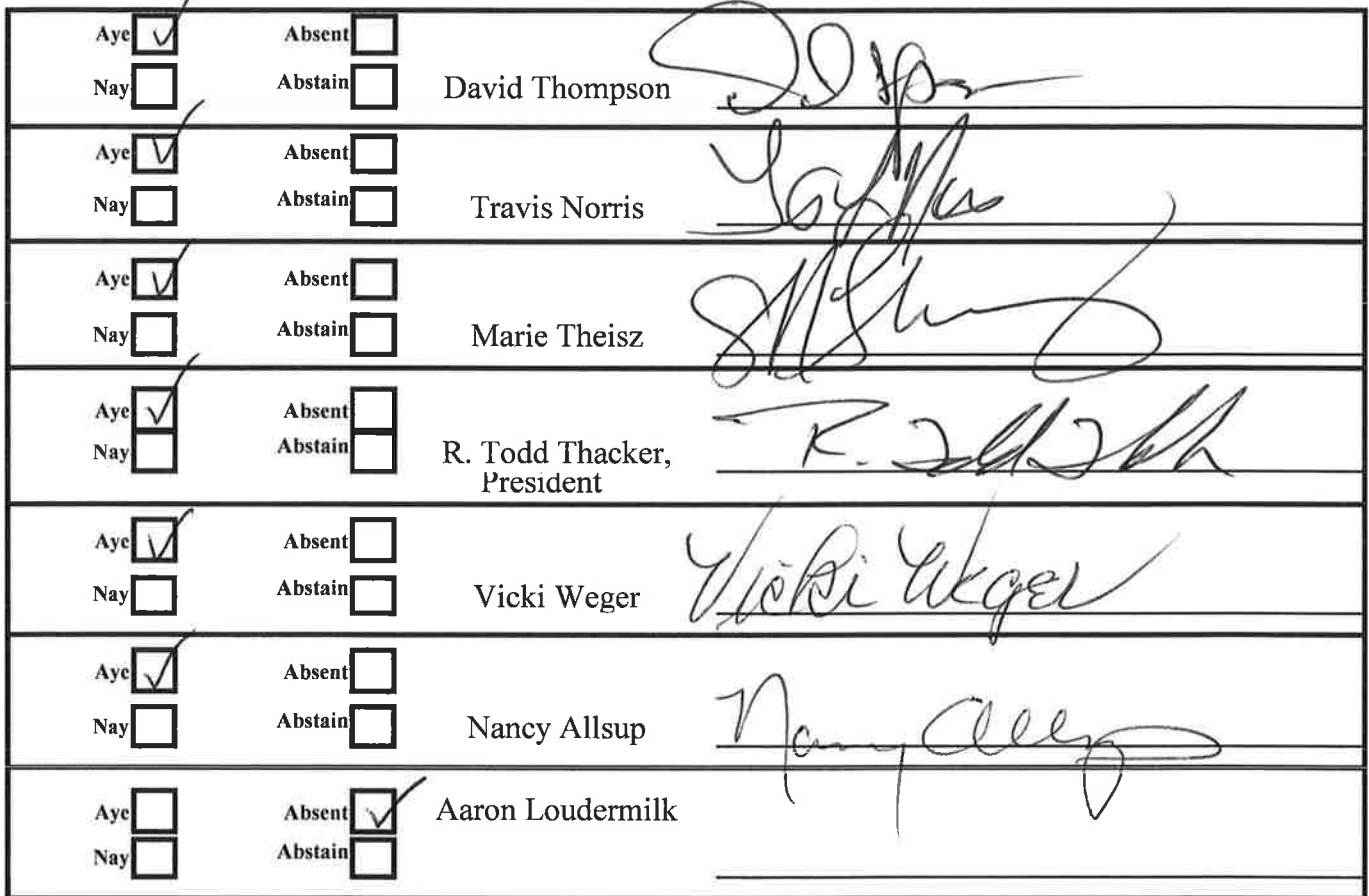 Aye Absent
Nay Abstain David Thompson
Aye Absent
Nay Abstain Travis Norris
Aye Absent
Nay Abstain Marie Theisz
Aye Absent
Nay Abstain R. Todd Thacker,
President R. Todd Thacker
Aye Absent
Nay Abstain Vicki Weger Vicki Weger
Aye Absent
Nay Abstain Nancy Allsup Nancy Allsup
Aye Absent Aaron Loudermilk
Nay Abstain